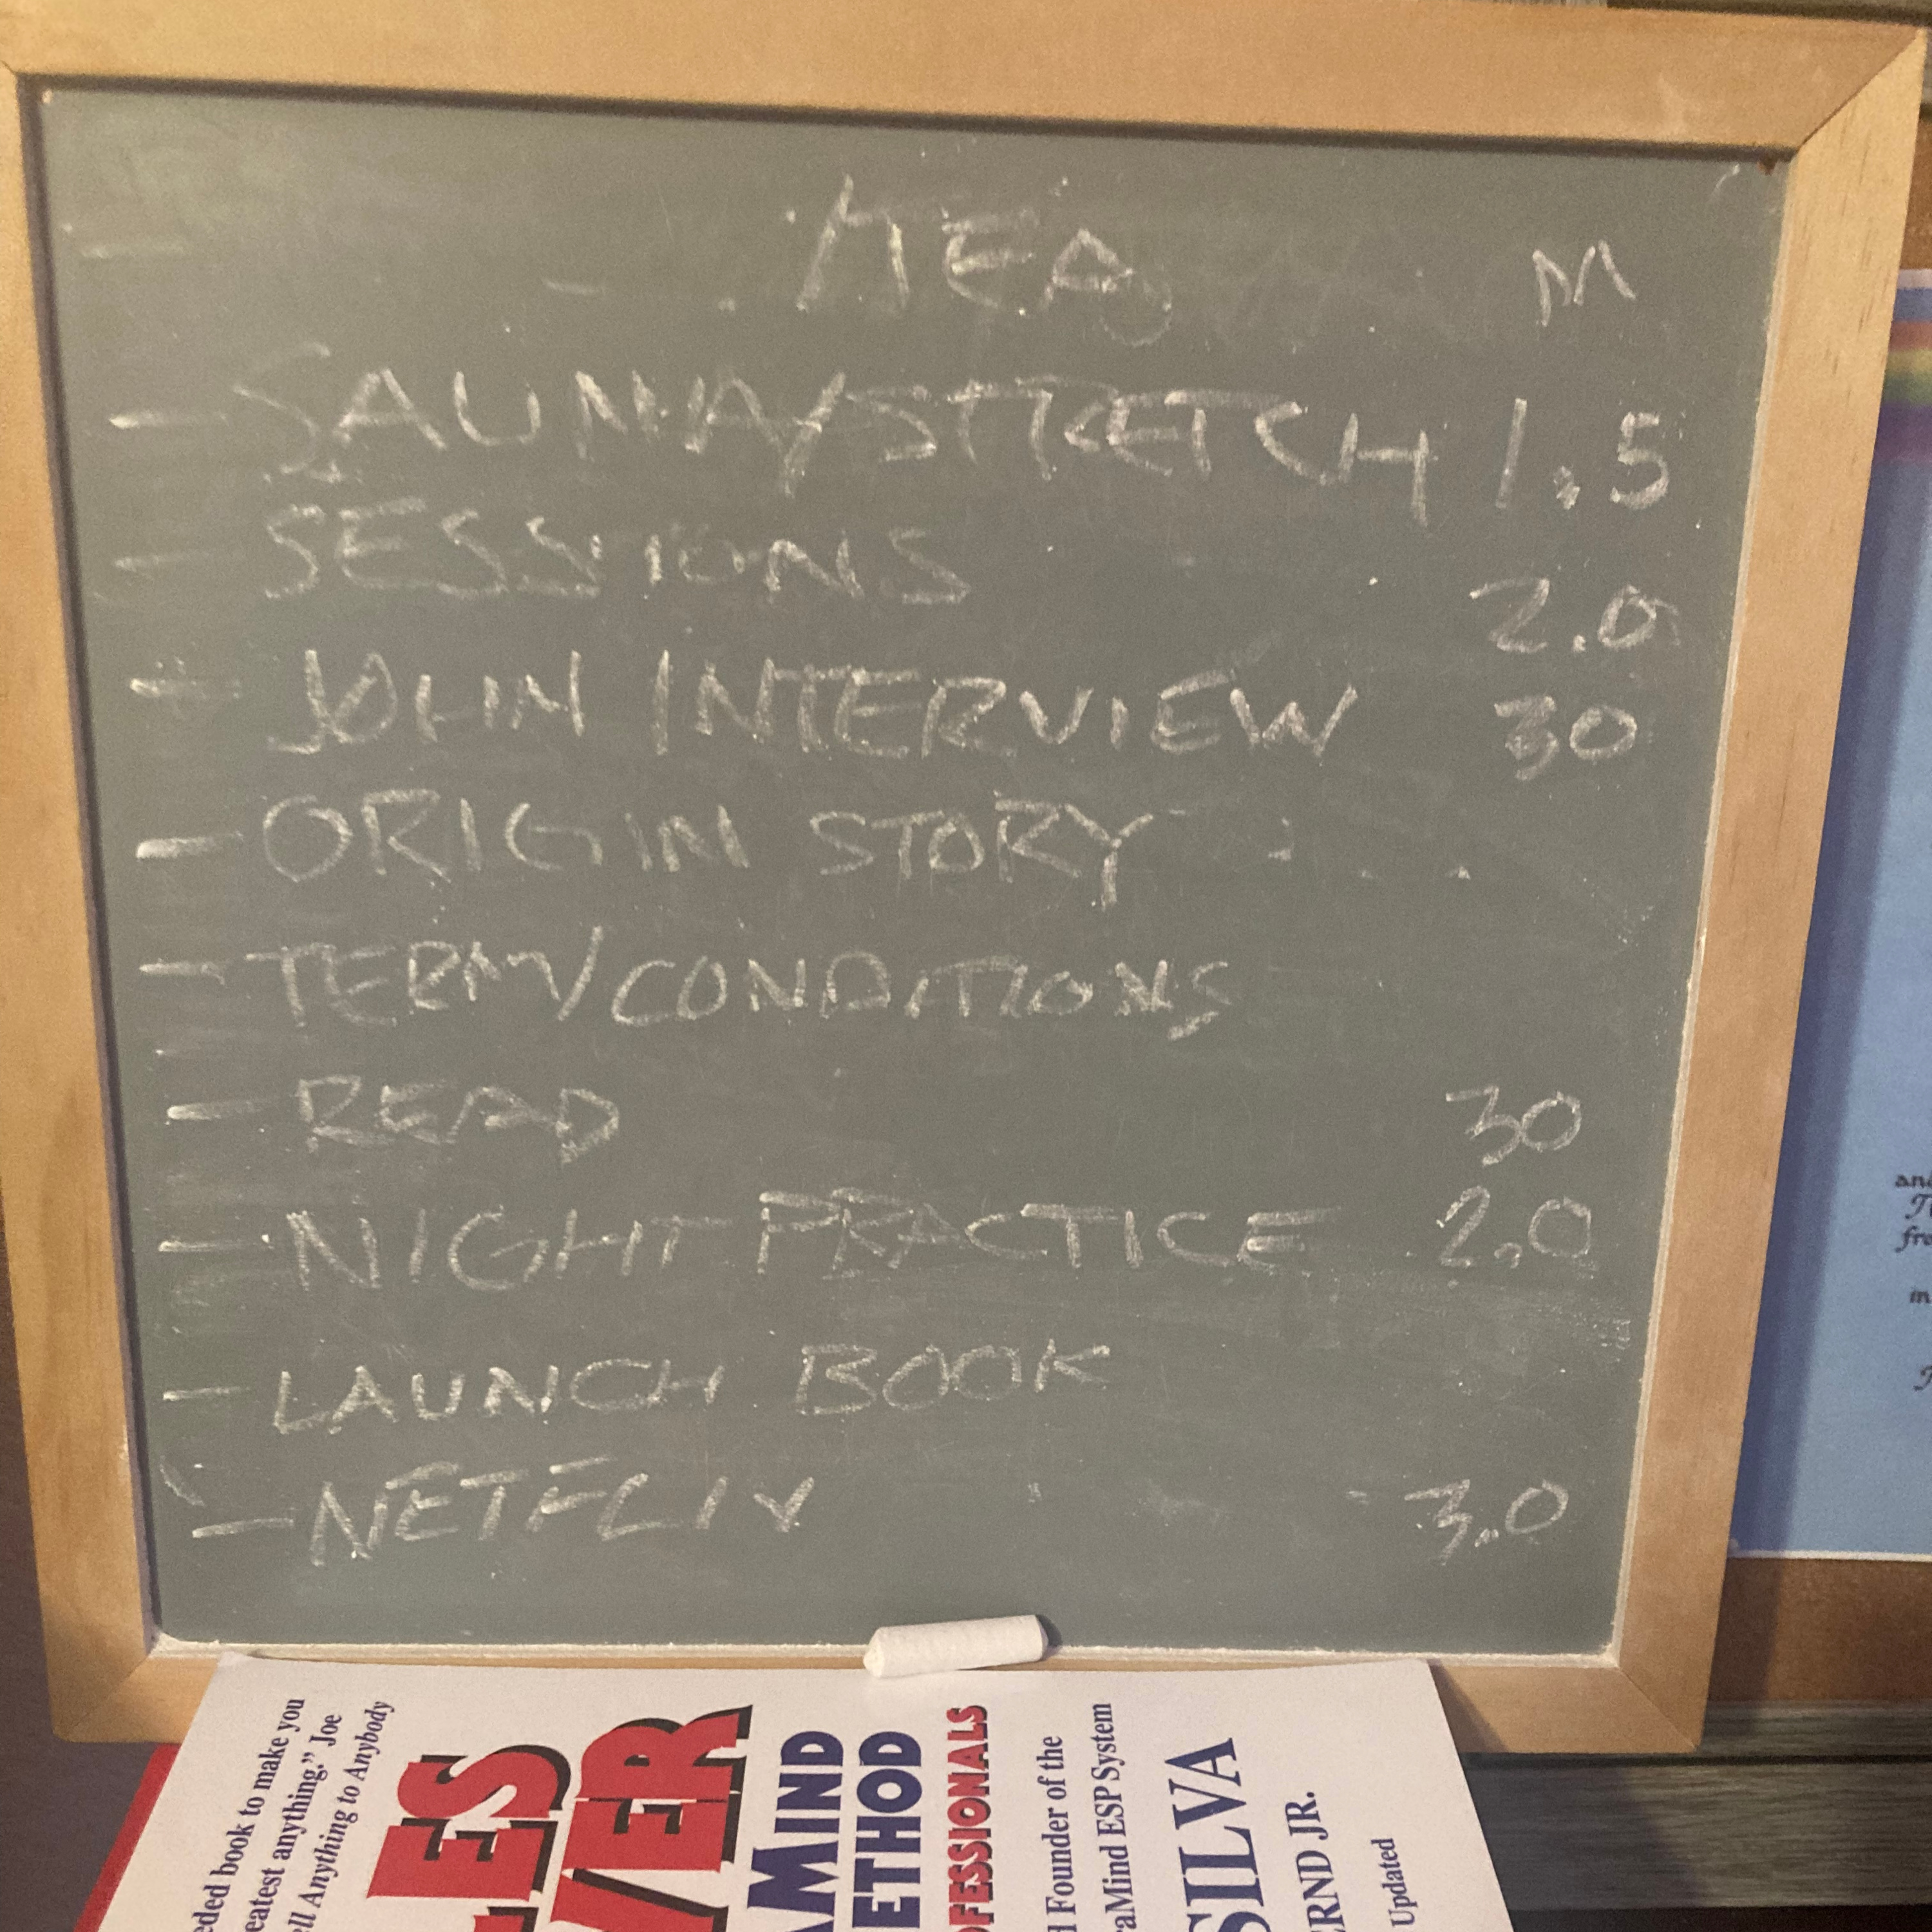 HEA M
- SAUNA/STRETCH 1.5
- SESSIONS 2.0
- JOHN INTERVIEW 30
- ORIGIN STORY
- TERM/CONDITIONS
- READ 30
- NIGHT PRACTICE 2.0
- LAUNCH BOOK
- NETFLIX 3.0
eded book to make you
eatest anything," Joe
ll Anything to Anybody
ES
ER
MIND
ETHOD
OFESSIONALS
d Founder of the
raMind ESP System
SILVA
ERND JR.
Updated
and
fro
in